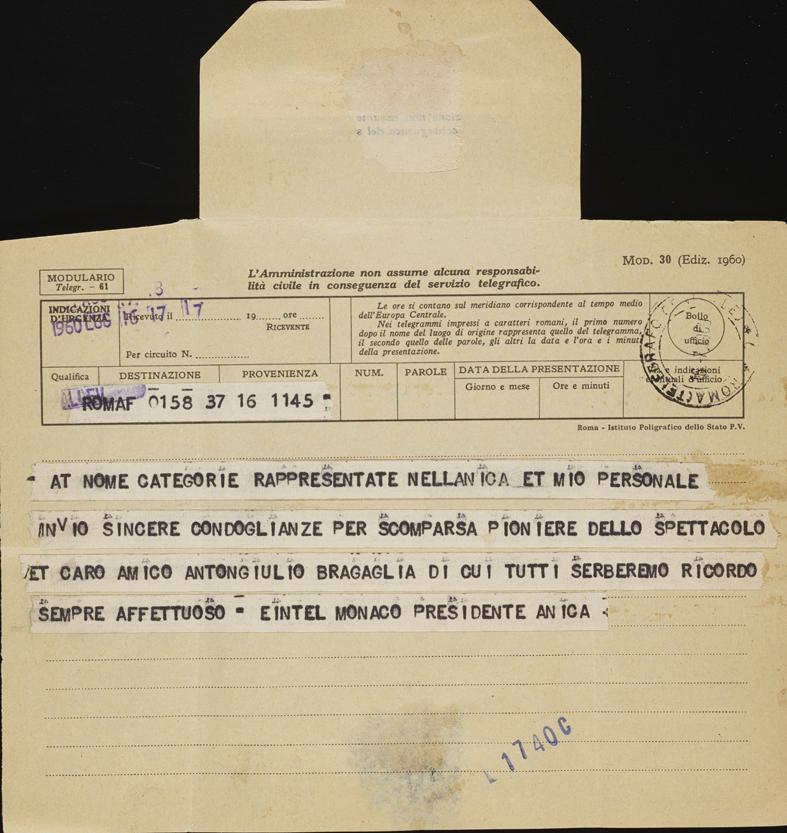 MODULARIO
Telegr. - 61
L'Amministrazione non assume alcuna responsabi-
lità civile in conseguenza del servizio telegrafico.
MOD. 30 (Ediz. 1960)
INDICAZIONI
D'URGENZA
1960 LUG 16 17 17
Ricevuto il 19 ore
RICEVENTE
Per circuito N.
Le ore si contano sul meridiano corrispondente al tempo medio
dell'Europa Centrale.
Nei telegrammi impressi a caratteri romani, il primo numero
dopo il nome del luogo di origine rappresenta quello del telegramma,
il secondo quello delle parole, gli altri la data e l'ora e i minuti
della presentazione.
Bollo
di
ufficio
Qualifica
DESTINAZIONE
PROVENIENZA
NUM.
PAROLE
DATA DELLA PRESENTAZIONE
Giorno e mese
Ore e minuti
e indicazioni
eventuali d'ufficio
ROMAF 0158 37 16 1145 =
Roma - Istituto Poligrafico dello Stato P.V.
- AT NOME CATEGORIE RAPPRESENTATE NELLANICA ET MIO PERSONALE
INVIO SINCERE CONDOGLIANZE PER SCOMPARSA PIONIERE DELLO SPETTACOLO
ET CARO AMICO ANTONGIULIO BRAGAGLIA DI CUI TUTTI SERBEREMO RICORDO
SEMPRE AFFETTUOSO = EINTEL MONACO PRESIDENTE ANICA